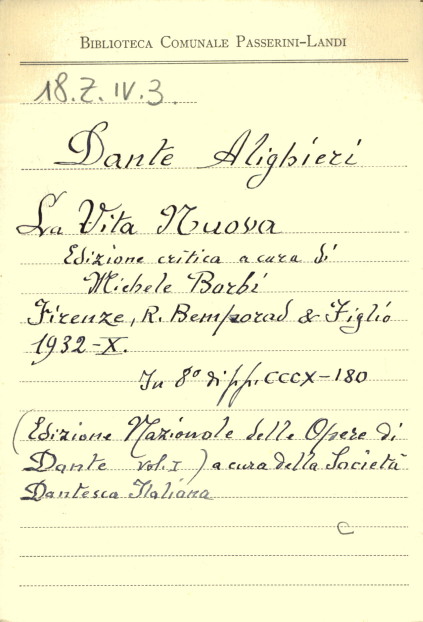 BIBLIOTECA COMUNALE PASSERINI-LANDI
18.Z.IV.3.
Dante Alighieri
La Vita Nuova
Edizione critica a cura di
Michele Barbi
Firenze, R. Bemporad & Figlio
1932-X.
In 8° di pp. CCCX-180
(Edizione Nazionale delle Opere di
Dante vol. I) a cura della Società
Dantesca Italiana
C